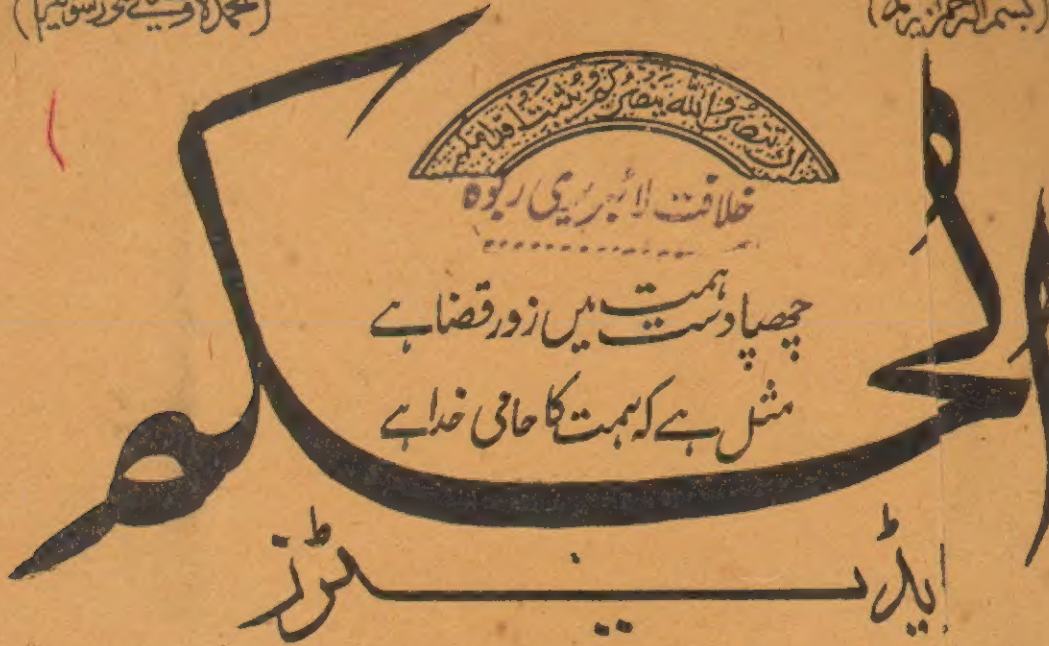 (بسم اللہ الرحمن الرحیم)
ان تنصروا اللہ ینصرکم ویثبت اقدامکم
خلافت لائبریری ربوہ
الحکم
چھپا دست ہمت میں زور قضا ہے
مثل ہے کہ ہمت کا حامی خدا ہے
ایڈیٹرز